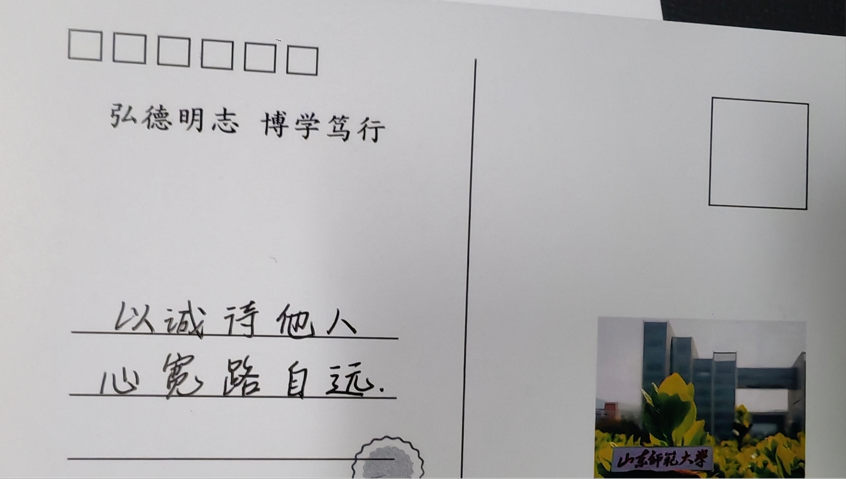 弘德明志 博学笃行
以诚待他人
心宽路自远.
山东师范大学